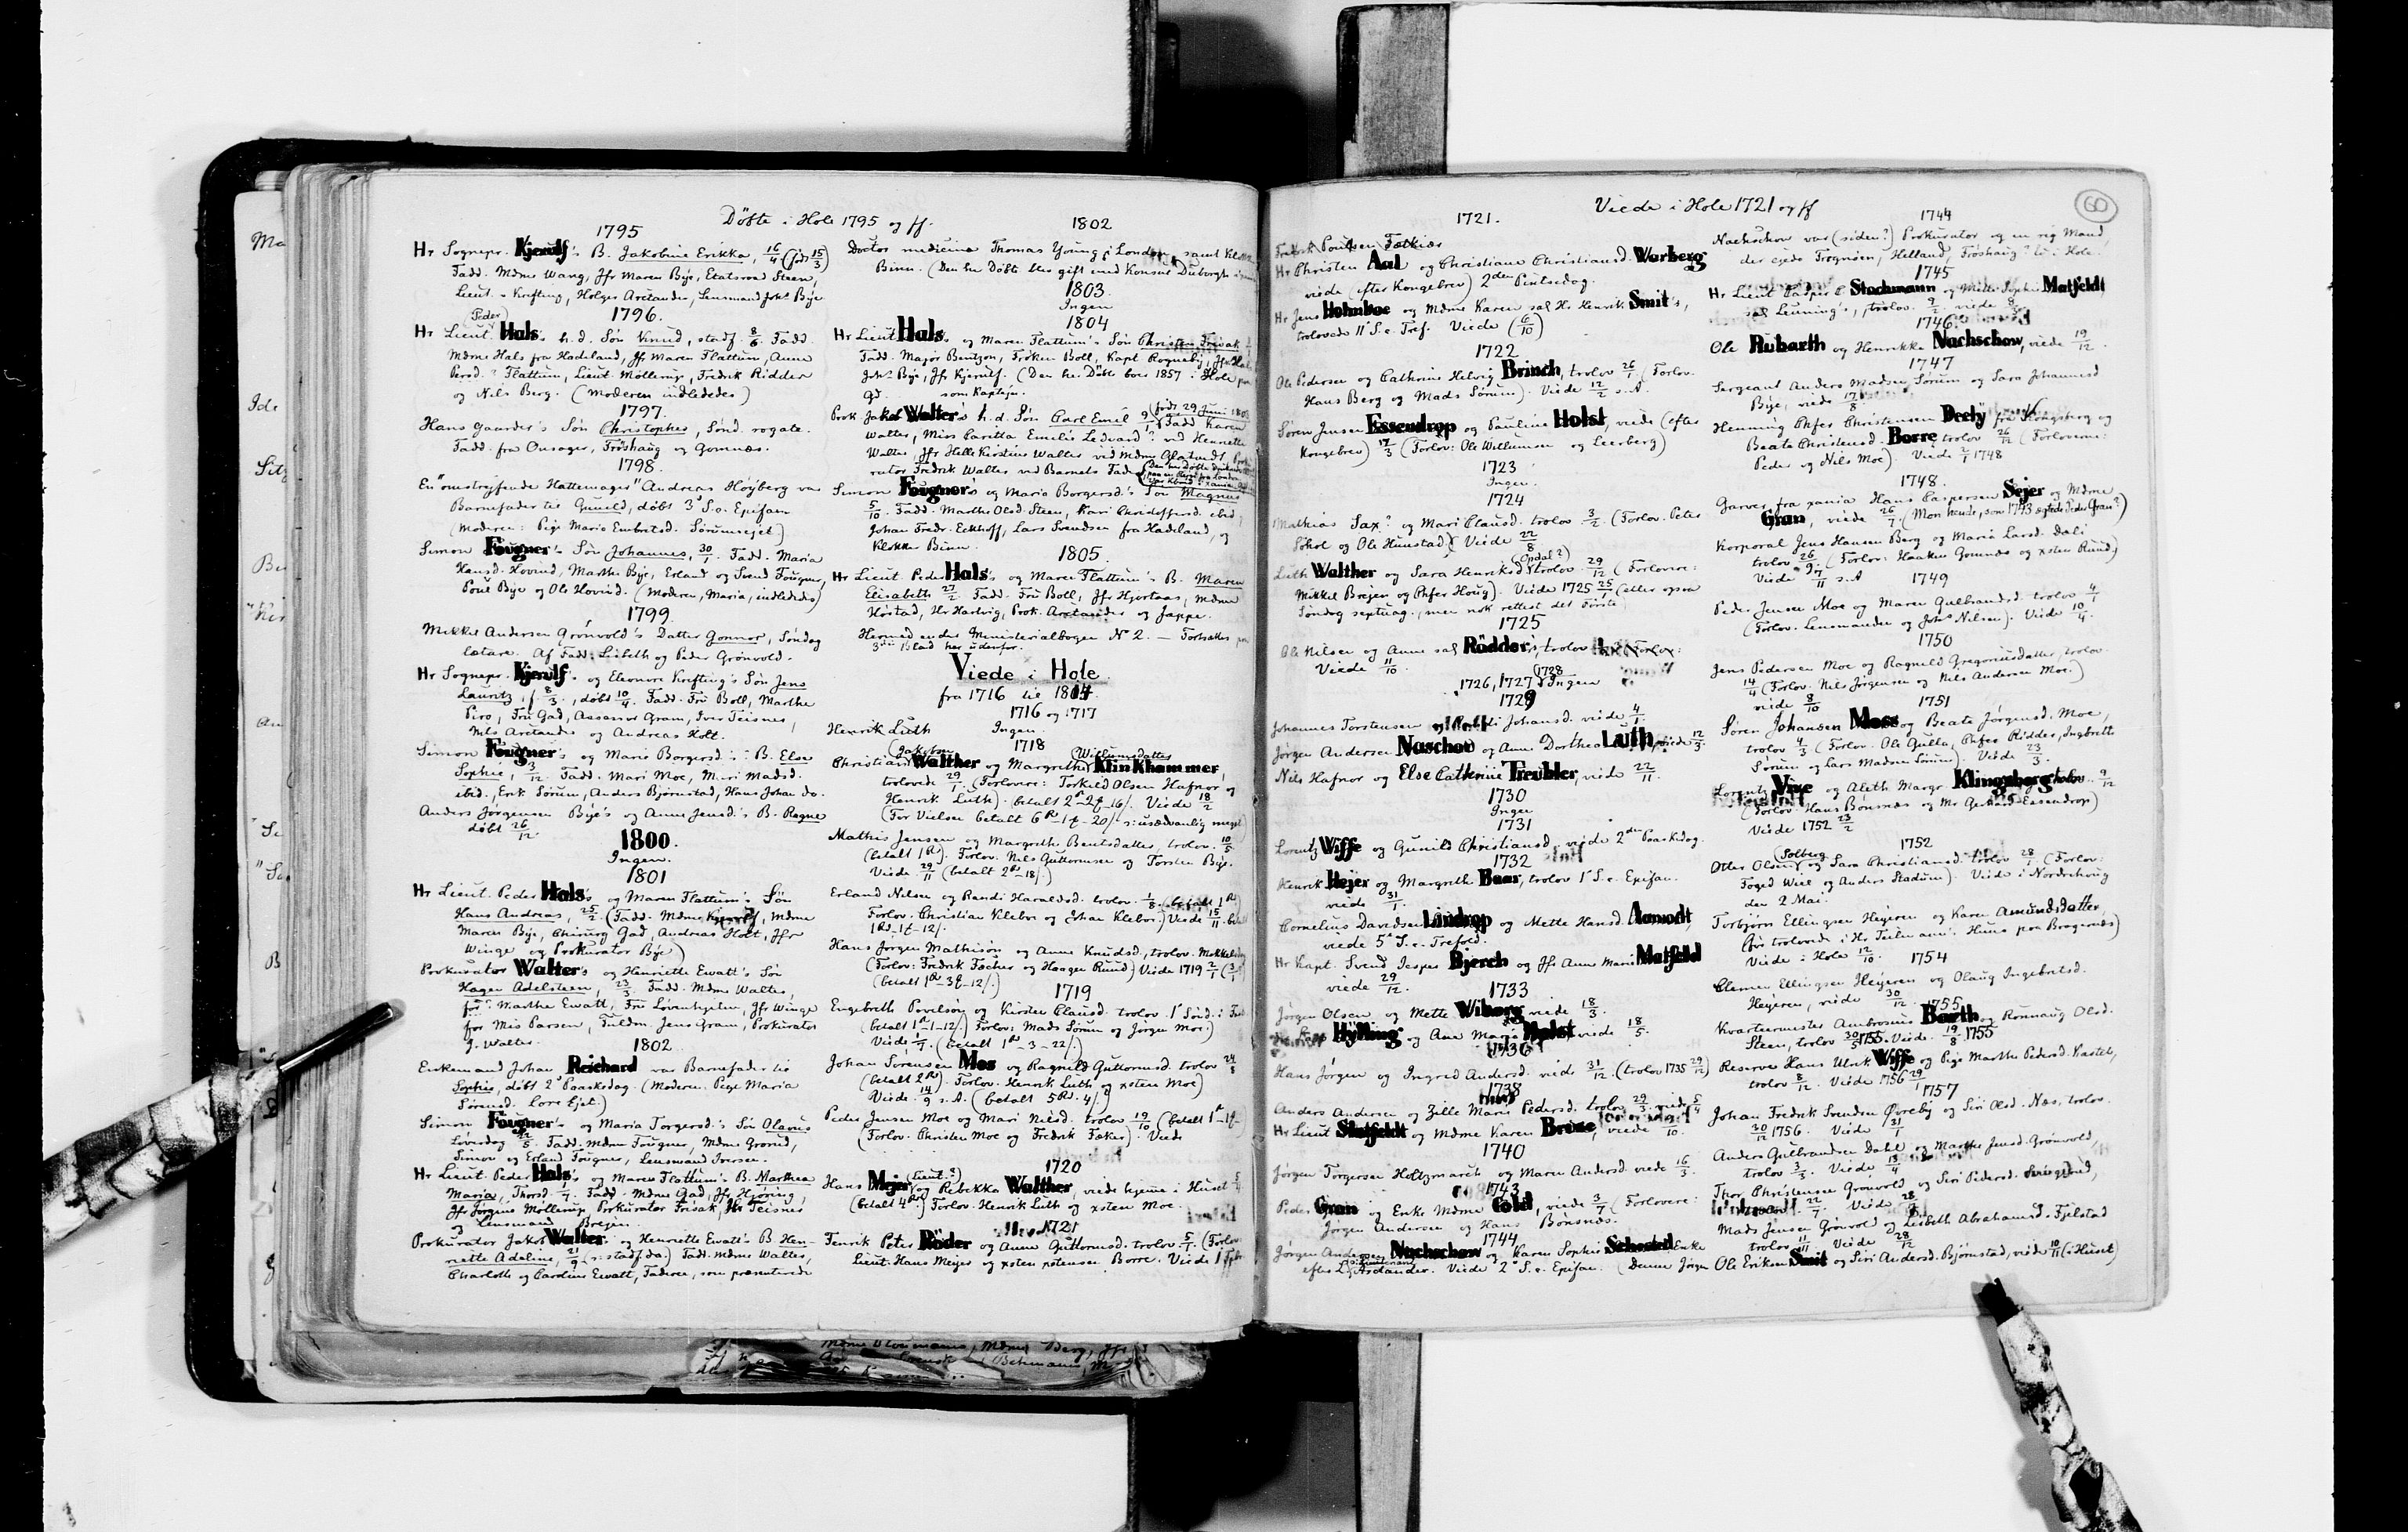 Døbte i Hole 1795 og ff.
1795
Hr Sognepr. Kjerulf's B. Jakobine Erikka, 16/4 (født 15/3)
Fadd. Mdme Wang, Jfr Maren Bye, Etatsraad Steen,
Lieut. v. Krefting, Holger Arctander, Lensmand Johs Bye
1796.
(Peder)
Hr Lieut. Hals h. d. Søn Knud, stadf. 8/6. Fadd.
Mdme Hals fra Hadeland, Jfr Maren Flattum, Anne
Persd.? Flattum, Lieut. Møllerup, Fredrik Ridder
og Nils Berg. (Moderen indlededes)
1797.
Hans Gaarder's Søn Christopher, Sønd. rogate.
Fadd. fra Onsager, Frøshaug og Gomnæs.
1798.
En "omstreifende Hattemager" Andreas Høyberg var
Barnefader til Gunild, døbt 3 S. e. Epifan
(Moderen: Pige Marie Embretsd. Sørumsejet.)
Simon Fougner's Søn Johannes, 30/1. Fadd. Maria
Hansd. Hovind, Marthe Bye, Erland og Svend Fougner,
Poul Bye og Ole Hovind. (Moderen, Maria, indlededes)
1799.
Mikkel Andersen Grønvold's Datter Gonnor, Søndag
lætare. Af Fadd: Lisbeth og Peder Grønvold.
Hr Sognepr. Kjerulf's og Eleonore Krefting's Søn Jens
Lauritz, f. 8/3, døbt 10/4. Fadd. Fru Boll, Marthe
Piro, Fru Gad, Assessor Gram, Iver Teisnes,
Nils Arctander og Andreas Holt.
Simon Fougner's og Marie Borgersd.'s B. Else
Sophie, 3/12. Fadd. Mari Moe, Mari Madsd.
ibid., Erik Sørum, Anders Bjørnstad, Hans Johan do.
Anders Jørgensen Bye's og Anne Jensd.'s B. Ragne
døbt 26/12.
1800.
Ingen.
1801
Hr Lieut. Peder Hals's og Maren Flattum's Søn
Hans Andreas, 25/2. (Fadd. Mdme Kjerulf, Mdme
Maren Bye, Chirurg Gad, Andreas Holt, Jfr
Winge og Prokurator Bye)
Prokurator Walter's og Henriette Ewatt's Søn
Hagen Adelsteen, 23/3. Fadd. Mdme Walter,
for? Marthe Ewatt, Fru Løvenhjelm, Jfr Winge
for Mis Parsen, Fuldm. Jens Gram, Prokurator
J. Walter.
1802
Enkemand Johan Reichard var Barnefader til
Sophie, døbt 2 Paaskedag. (Moderen: Pige Maria
Sørensd. Lore Ejet.)
Simon Fougner's og Maria Torgersd.'s Søn Olavus
Løverdag 22/5. Fadd. Mdme Fougner, Mdme Grorud,
Simon og Erland Fougner, Lensmand Iversen.
Hr Lieut. Peder Hals's og Maren Flattum's B. Marthea
Maria, Thorsd. 1/7. Fadd. Mdme Gad, Jfr Hjøring,
Jfr Jørgine Møllerup, Prokurator Frisak, Hr Teisnes
og Lensmand Brejen.
Prokurator Jakob Walter's og Henriette Ewatt's B. Hen-
riette Adeline, 21/9 (ɔ: stadf. da.) Fadd. Mdme Walter,
Charlotte og Caroline Ewatt, Faderen, som præsenterede
1802
Doctor medicinæ Thomas Young i London, samt Klokker
Binn. (Den her Døbte blev gift med Konsul Duborgh
1803.
Ingen
1804
Hr Lieut. Hals og Maren Flattum's Søn Christen Frisak
Fadd. Major Bentzon, Frøken Boll, Kapt. Rogneby, Jfr
Johs Bye, Jfr Kjerulf. (Den her Døbte boer 1857 i Hole
Gd. som Kaptejn.
Prok. Jakob Walter's h. d. Søn Carl Emil 9/1 (født 29 Juni 1803) Fadd. Karen
Walter, Miss Caritta Emilie Ledvard? ved Henriette
Walter, Jfr Helle Kirstine Walter ved Mdme Glatvedt, Proku-
rator Fredrik Walter ved Barnets Fader (Den her Døbte
Simon Fougner's og Maria Borgersd.'s Søn Magnus
5/10. Fadd. Marthe Olsd. Steen, Kari Christoffersd. ibid,
Johan Fredr. Eckhoff, Lars Svendsen fra Hadeland, og
Klokker Binn.
1805.
Hr Lieut. Peder Hals's og Maren Flattum's B. Maren
Elisabeth 27/2. Fadd. Fru Boll, Jfr Hjortaas, Mdme
Hostad, Hr Hartvig, Prok. Arctander og Jappe.
Hermed ender Ministerialbogen No 2. — Fortsættes paa
3die Blad her udenfor.
Viede i Hole
fra 1716 til 1814.
1716 og 1717
Ingen.
Henrik Luth
1718
(Jakobsen) (Willumsdatter)
Christian Walther og Margrethe Klinkhammer,
trolovede 29/1. (Forlovere: Torkild Olsen Hafnor og
Henrik Luth). (betalt 2 Rd-2 f-16/.) Viede 18/2
(For Vielsen betalt 6 Rd-1 f-20/ ɔ: usædvanlig meget)
Mathis Jensen og Margrethe Bentsdatter, trolov. 10/5.
(betalt 1 Rd). Forlov. Nils Guttormsen og Torsten Bye.
Viede 29/11 (betalt 2 Rd-18/.)
Erland Nilsen og Randi Haraldsd. trolov. 1/8. (betalt 1 Rd)
Forlov. Christian Klebo og Johan Klebo.) Viede 15/11. betalt
1 Rd-1 f-12/.
Hans Jørgen Mathisøn og Anne Knudsd., trolov. Mikkelsdag
(Forlov: Fredrik Fæcher og Haagen Ruud) Viede 1719 2/1
(betalt 1 Rd-3 f-12/.)
1719
Engebreth Povelsøn og Kirsten Clausd. trolov. 1 Sønd. i Faste
(betalt 1 Rd-1-12/.) Forlov: Mads Sørum og Jørgen Moe.)
Viede 1/7. (betalt 1 Rd-3-22/.)
Johan Sørensen Moe og Ragnild Guttormsd. trolov. 24/8
(betalt 2 Rd). Forlov. Henrik Luth og xsten Moe)
Viede 14/9 s. A. (betalt 5 Rd. 4/.)
Peder Jensen Moe og Mari Nilsd. trolov. 19/10 (betalt 1 Rd-1 f-
(Forlov. Christen Moe og Fredrik Fæker). Viede
1720
Hans Mejer (Lieut.?) og Rebekka Walther, viede hjemme i Huset
(betalt 4 Rd.) Forlov. Henrik Luth og xsten Moe.
1721
Fenrik Peter Röder og Anne Guttormsd. trolov. 5/7. (Forlov
Lieut. Hans Meijer og xsten xstensen Borre. Viede
Viede i Hole 1721 og ff
60
1721.
Fredrik Poulsen Fætkiær
Hr Christen Aal og Christiane Christiansd. Warberg
viede (efter Kongebrev) 2den Pintsedag.
Hr Jens Holmboe og Mdme Karen sal. Hr Henrik Smit's,
trolovede 11 S. e. Tref. Viede (6/10)
1722
Ole Pedersen og Cathrine Helvig Brinch, trolov 26/1 (Forlov.
Hans Berg og Mads Sørum). Viede 12/2 s. A.
Søren Jensen Essendrop og Pauline Holst, viede (efter
Kongebrev) 17/3 (Forlov: Ole Willumsen og Leerberg)
1723
Ingen.
1724
Mathias Sax? og Mari Clausd. trolov. 3/2. (Forlov. Peter
Sohol og Ole Hunstad). Viede 22/8.
(Opdal?)
Luth Walther og Sara Henriksd. trolov. 29/12 (Forlovere:
Mikkel Brejen og Chrfer Houg). Viede 1725 25/1 (eller ogsaa
Søndag septuag., men nok rettest det Første)
1725
Ole Nilsen og Anne sal Rödder's, trolov
Viede 11/10.
1726, 1727, 1728 Ingen
1729
Johannes Torstensen og Randi Johansd. viede 4/1.
Jørgen Andersen Naschou og Anne Dorthea Luth, viede 12/3.
Nils Hafnor og Else Cathrine Treubler, viede 22/11.
1730
Ingen
1731
Lorentz Wiffe og Gunild Christiansd., viede 2den Paaskedag.
1732
Henrik Hejer og Margrethe Baar, trolov 1 S. e. Epifan.
viede 31/1.
Cornelius Davidsen Lindrop og Mette Hansd. Aamodt,
viede 5 S. e. Trefold.
Hr Kapt. Svend Jesper Bjerch og Jfr Anne Marie Matfeldt
viede 29/12.
1733
Jørgen Olsen og Mette Wiborg viede 18/3.
Hÿlling og Ane Marie Holst viede 18/5.
1736
Hans Jørgen og Ingrid Andersd. viede 31/12. (trolov 1735 29/12)
1738
Anders Andersen og Zille Marie Pedersd. trolov. 29/3. viede 5/4
Hr Lieut Slatfeldt og Mdme Karen Brose, viede /10.
1740
Jørgen Torgersen Holtzmarch og Maren Andersd. viede 16/3.
1743
Peder Gran og Enke Mdme Cold, viede 3/7 (Forlovere:
Jørgen Andersen og Hans Bønsnæs.
1744
Jørgen Andersen Nachschow og Karen Sophie Schested Enke
efter L. Arctander. Viede 2 S. e. Epifan. (Denne Jørgen
1744
Nachschow var (siden?) Prokurator og en rig Mand,
der ejede Frognøen, Helland, Frøshaug? til i Hole.
1745
Hr Lieut Casper C Stochmann og Mette Sophie Matfeldt,
sal Leuning's, trolov. 9/2 viede 8/3.
1746
Ole Rubarth og Henrikke Nachschow, viede 19/12.
1747
Sergeant Anders Madsen Sørum og Sara Johannesd
Bye, viede 17/8
Henning Chrfer Christensen Deely fra Kongsberg og
Beate Christensd. Borre trolov 26/12 (Forloverne:
Peder og Nils Moe) Viede 2/1 1748
1748.
Garver fra xania Hans Caspersen Sejer og Mdme
Gran, viede 26/7. (Mon hende, som 1743 ægtede Peder Gran?)
Korporal Jens Hansen Berg og Maria Larsd. Dæli
trolov 26/9. (Forlov: Haaken Gomnæs og xsten Ruud.)
Viede 7/11 s. A
1749
Peder Jensen Moe og Maren Gulbrandsd. trolov 4/1
(Forlov. Lensmanden og Johs Nilsen). Viede 10/4.
1750
Jens Pedersen Moe og Ragnild Gregoriusdatter, trolov.
14/4 (Forlov. Nils Jørgensen og Nils Andersen Moe.)
viede 8/10
1751
Søren Johansen Moss og Beate Jørgensd. Moe,
trolov 4/3 (Forlov. Ole Gulla, Chrfer Ridder, Ingbrett
Sørum og Lars Madsen Sørum). Viede 23/3.
Lorentz Vixe og Aleth Margr. Klingenberg trolov. 9/12
(Forlov. Hans Bønsnæs og Mr Gerhard Essendrop)
Viede 1752 23/2
1752
Otter Olsen Solberg og Sara Christiansd. trolov 28/1 (Forlov:
Foged Wiel og Anders Stadum). Viede i Norderhoug
den 2 Mai.
Torbjørn Ellingsen Hejeren og Karen Amundsdatter
(før trolovede i Hr Teilmann's Huus paa Bragernæs)
Viede i Hole 12/10.
1754
Clemen Ellingsen Hejeren og Olaug Ingebritsd.
Hejeren, viede 30/12.
1755
Kvarteermester Ambrosius Barth og Ronnaug Olsd.
Steen, trolov 30/5 1755. Viede 19/8 1755
Reserve Hans Ulrik Wiffe og Pige Marthe Pedersd. Kastet,
trolov 8/12. Viede 1756 29/1
1757
Johan Fredrik Svendsen Øvreby og Siri Olsd. Næs, trolov.
30/12 1756. Viede 31/1
Anders Gulbrandsen Dahl og Marthe Jensd. Grønvold,
trolov 3/3. Viede 13/4
Thor Christensen Grønvold og Siri Pedersd. Svingerud,
trolov 22/7. Viede 28/
Mads Jensen Grønvold og Lisbeth Abrahamsd. Fjelstad
trolov 11/11 Viede 28/12
Ole Eriksen Smit og Siri Andersd. Bjørnstad, viede 10/11 (i Huset)